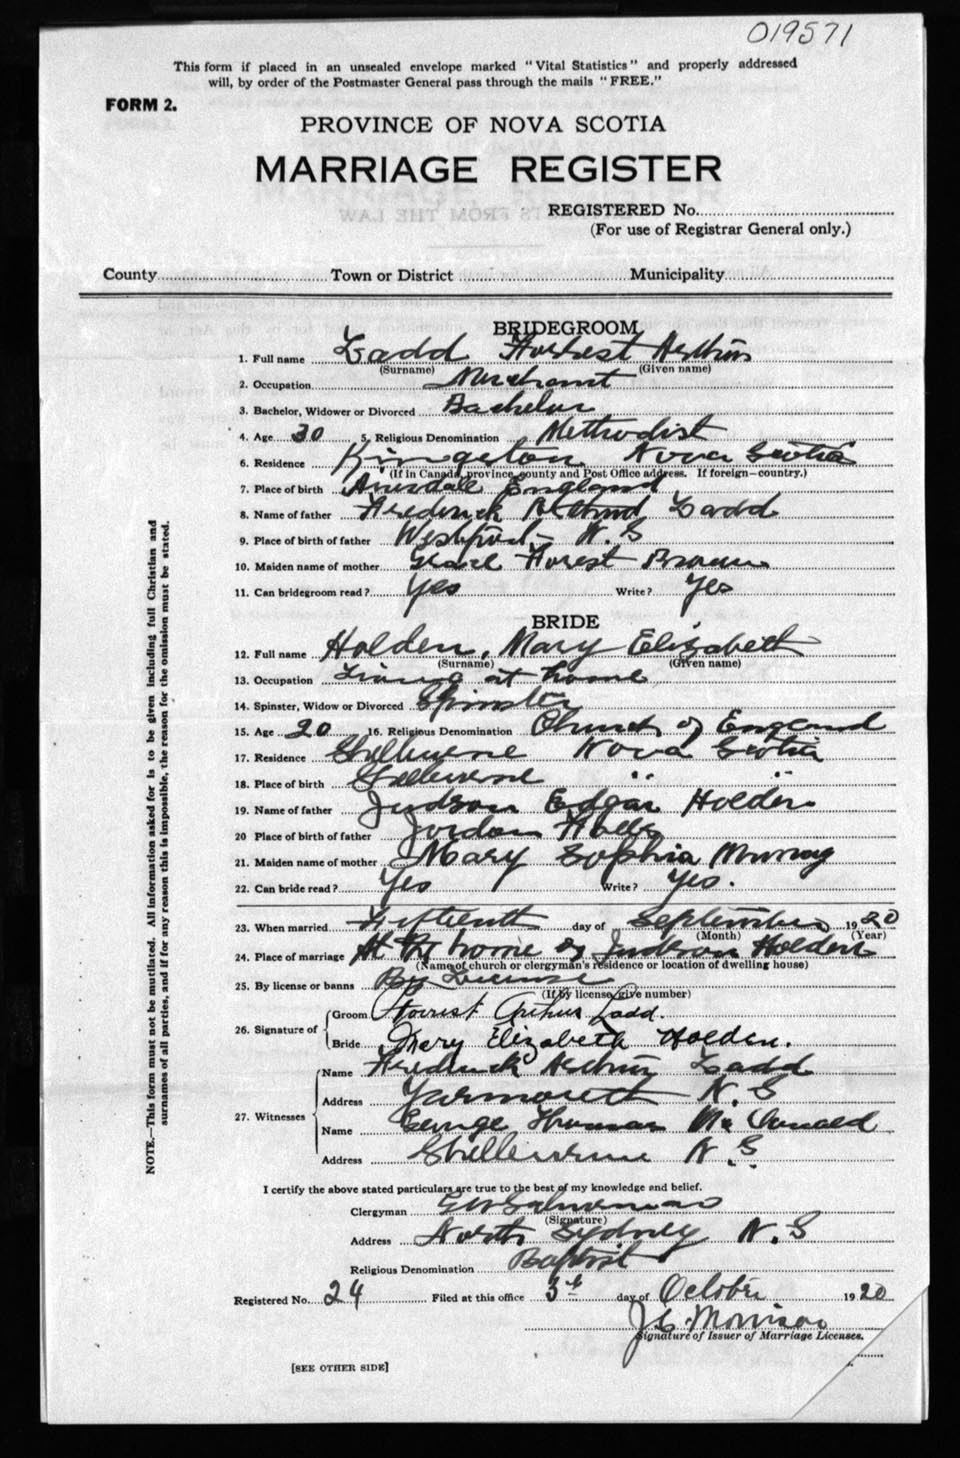 019571
This form if placed in an unsealed envelope marked "Vital Statistics" and properly addressed
will, by order of the Postmaster General pass through the mails "FREE."
FORM 2.
PROVINCE OF NOVA SCOTIA
MARRIAGE REGISTER
REGISTERED No.
(For use of Registrar General only.)
County Town or District Municipality
BRIDEGROOM
1. Full name Ladd Forrest Arthur
(Surname) (Given name)
2. Occupation Merchant
3. Bachelor, Widower or Divorced Bachelor
4. Age 30 5. Religious Denomination Methodist
6. Residence Kingston Nova Scotia
(If in Canada, province, county and Post Office address. If foreign—country.)
7. Place of birth England
8. Name of father Frederick Arthur Ladd
9. Place of birth of father Westport N.S
10. Maiden name of mother Grace Forest Brown
11. Can bridegroom read? Yes Write? Yes
BRIDE
12. Full name Holden, Mary Elizabeth
(Surname) (Given name)
13. Occupation Living at home
14. Spinster, Widow or Divorced Spinster
15. Age 20 16. Religious Denomination Church of England
17. Residence Shelburne Nova Scotia
18. Place of birth Shelburne " "
19. Name of father Judson Edgar Holden
20 Place of birth of father Jordan Falls
21. Maiden name of mother Mary Sophia Murray
22. Can bride read? Yes Write? Yes.
23. When married Fifteenth day of September 1920
(Month) (Year)
24. Place of marriage At the home of Judson Holden
(Name of church or clergyman's residence or location of dwelling house)
25. By license or banns By License
(If by license, give number)
26. Signature of Groom Forrest Arthur Ladd.
Bride Mary Elizabeth Holden.
27. Witnesses Name Frederick Arthur Ladd
Address Yarmouth N.S
Name George Thomas McDonald
Address Shelburne N.S.
I certify the above stated particulars are true to the best of my knowledge and belief.
Clergyman
(Signature)
Address North Sydney N.S
Religious Denomination Baptist
Registered No. 24 Filed at this office 3rd day of October 1920
J.C. Morrison
Signature of Issuer of Marriage Licenses.
[SEE OTHER SIDE]
NOTE.—This form must not be mutilated. All information asked for is to be given including full Christian and
surnames of all parties, and if for any reason this is impossible, the reason for the omission must be stated.